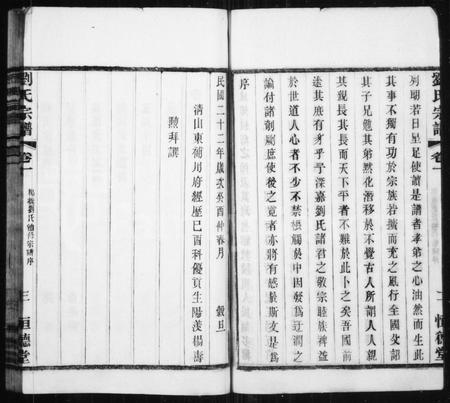 劉氏宗譜
卷一
二
恒德堂
列明若日星足使讀是譜者孝弟之心油然而生此
其事不獨有功於宗族若擴而充之風行全國父詔
其子兄勉其弟默化潛移於不覺古人所謂人人親
其親長其長而天下平者不難於此卜之矣吾國前
途其庶有豸乎予深嘉劉氏諸君之敬宗睦族裨益
於世道人心者不少不禁棖觸於中因叙爲
諭付諸剞劂庶使後之覽者亦將有感於斯文是爲
序
民國二十二年歲次癸酉仲春月
穀旦
清山東補用府經歷已酉科優貢生陽羨楊壽
拜譔
劉氏宗譜
卷一
楊巷劉氏續修宗譜序
三
恒德堂